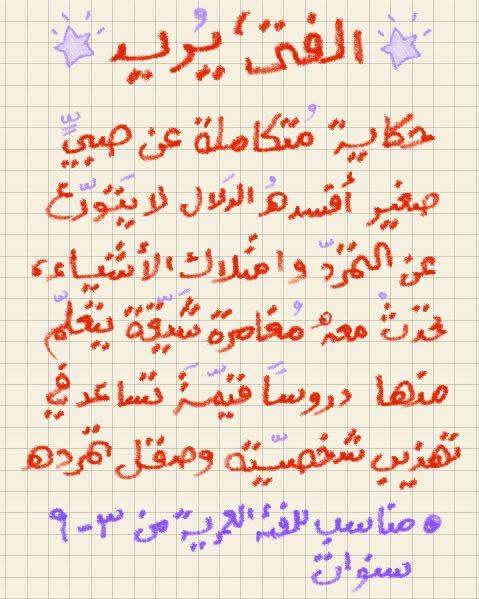 الفتى يُريد
حكاية مُتكاملة عن صبيٍّ
صغير أفسدهُ الدّلال لا يَتَوّرع
عن التمّرد وامتلاك الأشياء،
تحدْث معهُ مُغامرة شَيّقة يتعلّم
منها دروسًا قيّمَة تساعد في
تهذيب شخصيّته وصقل تمرده
• مناسب للفئة العمرية من ٣-٩
سنوات